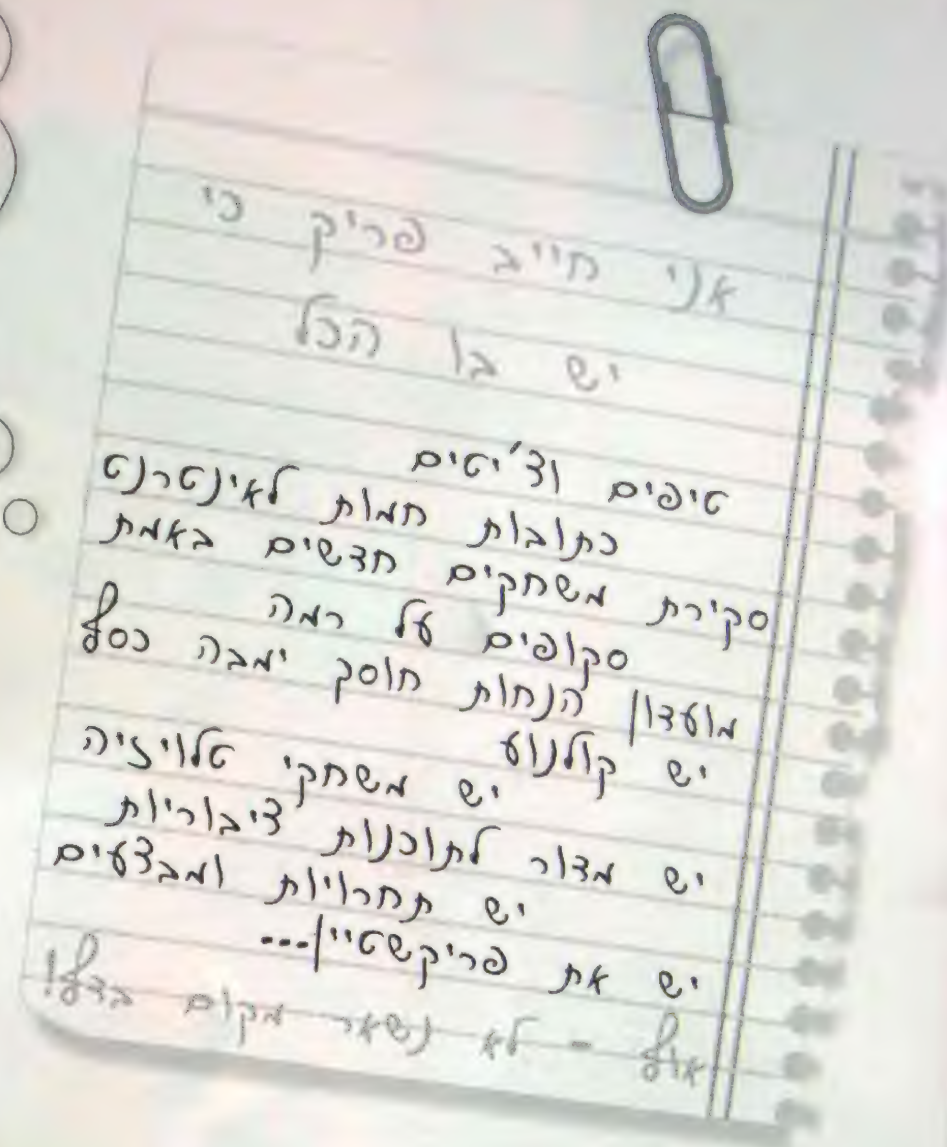 אני חייב פריק כי
יש בו הכל
טיפים וצ'יטים
כתובות חמות לאינטרנט
סקירת משחקים חדשים באמת
סקופים על רמה
מועדון הנחות חוסך ימבה כסף
יש קולנוע
יש משחקי טלויזיה
יש מדור לתוכנות ציבוריות
יש תחרויות ומבצעים
יש את פריקשטיין...
אוף - לא נשאר מקום בדף!